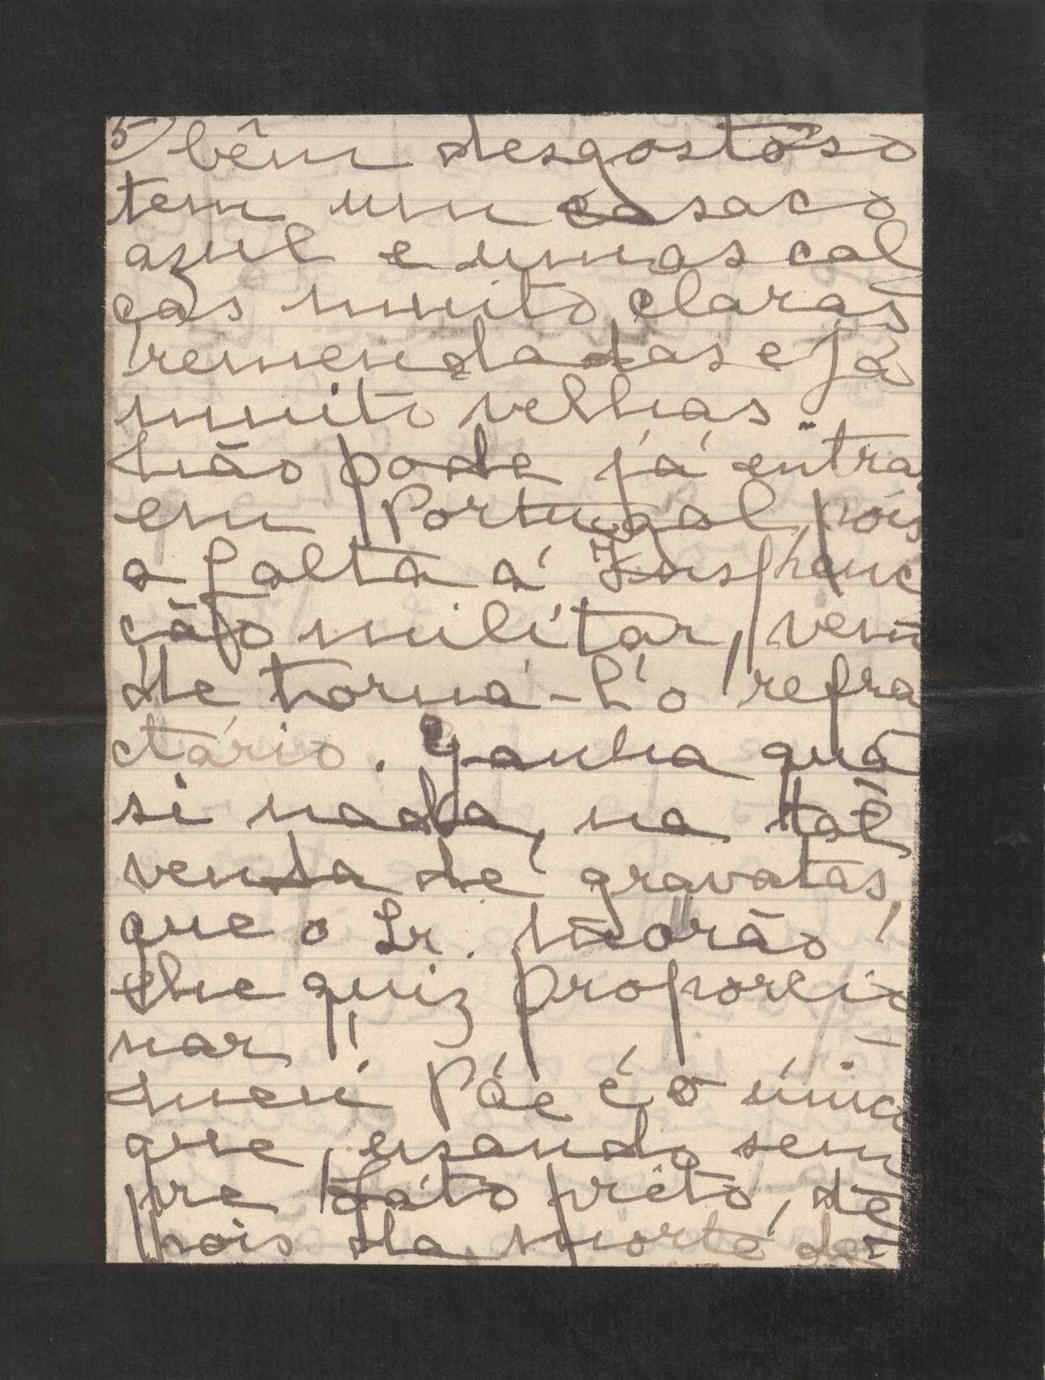 5) bêm desgostôso
tem um casaco
azul e umas cal
ças muito claras
remendadas e já
muito velhas.
Não pode já entrar
em Portugal, pois
a falta á Insphéuc
ção milítar, vem
de torná-l'o refra
ctário. Ganha quá
si nada, na tál
venda de gravatas,
que o Sr. Mórão
lhe quiz proporcio
nar!!
Meu Páe é o único
que, usando sem
pre fáto prêto, dê
pois da morte de